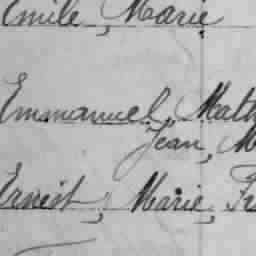 Emile, Marie
Emmanuel, Math
Jean, M
Ernest, Marie, Fr